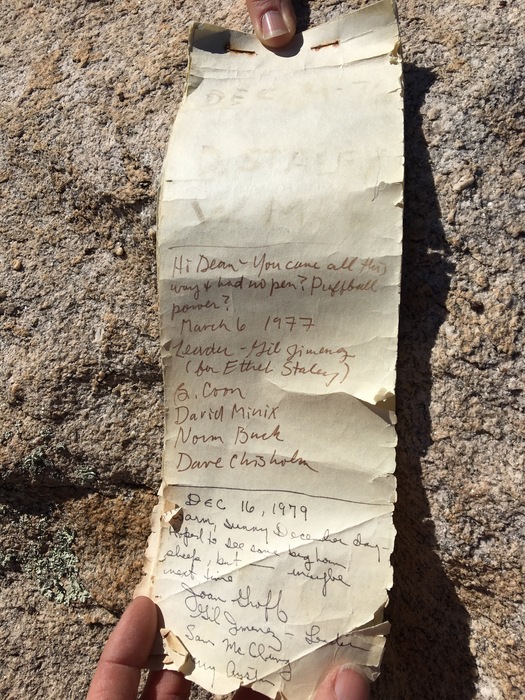 DEC
Hi Dean - You came all this
way & had no pen? Puffball
power?
March 6 1977
Leader - Gil Jimenez
(for Ethel Staley)
B. Coon
David Minix
Norm Buck
Dave Chisholm
DEC 16, 1979
Warm, sunny December day -
Hoped to see some big horn
sheep, but — maybe
next time
Joan
Gil Jimenez - Leader
Sam McClung